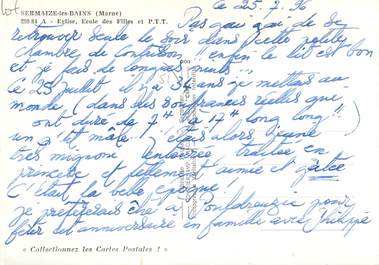 lot
SERMAIZE-les-BAINS (Marne)
220 84 A - Eglise, Ecole des Filles et P.T.T.
le 25.7.96
Pas gai gai de se
retrouver seule le soir dans cette petite
chambre de enfin le lit est bon
et je fais de longues nuits...
le 25 juillet il y a 34 ans je mettais au
monde (dans des souffrances réelles que
ont duré de 7H à 17H long long!!)
un p'tit mâle... j'étais alors jeune
très mignonne, entourée, traitée en
princesse et tellement aimée et gâtée
C'était la belle époque!
je préférerais être à pour
fêter cet anniversaire en famille avec Philippe
« Collectionnez les Cartes Postales ! »